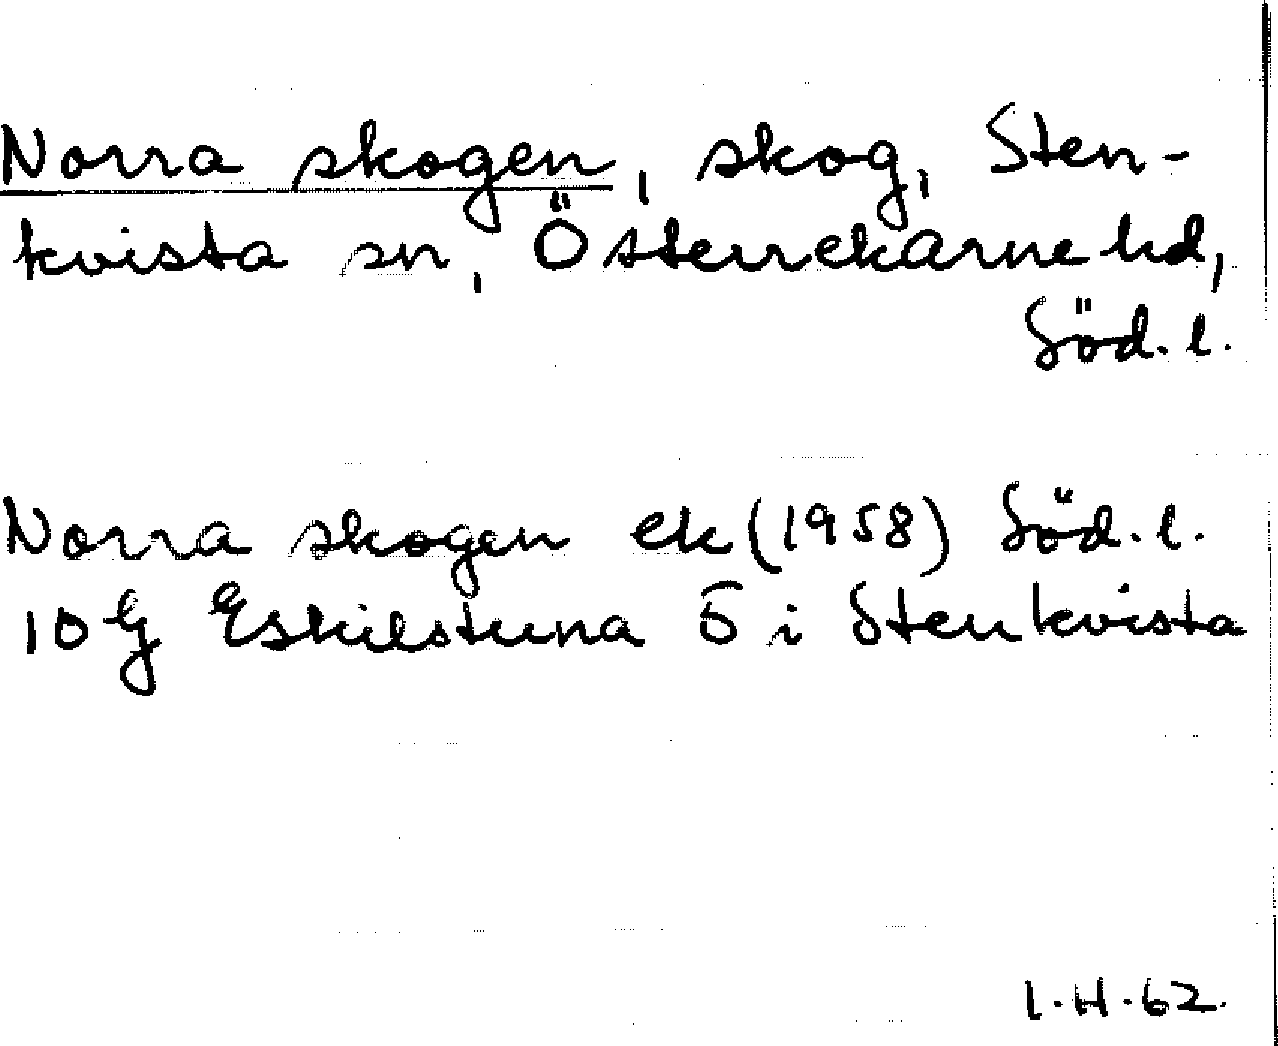 Norra skogen, skog, Sten-
kvista sn, Österrekarne hd,
Söd. l.
Norra skogen ek (1958) Söd. l.
10 G Eskilstuna 5 i Stenkvista
I.H.62.